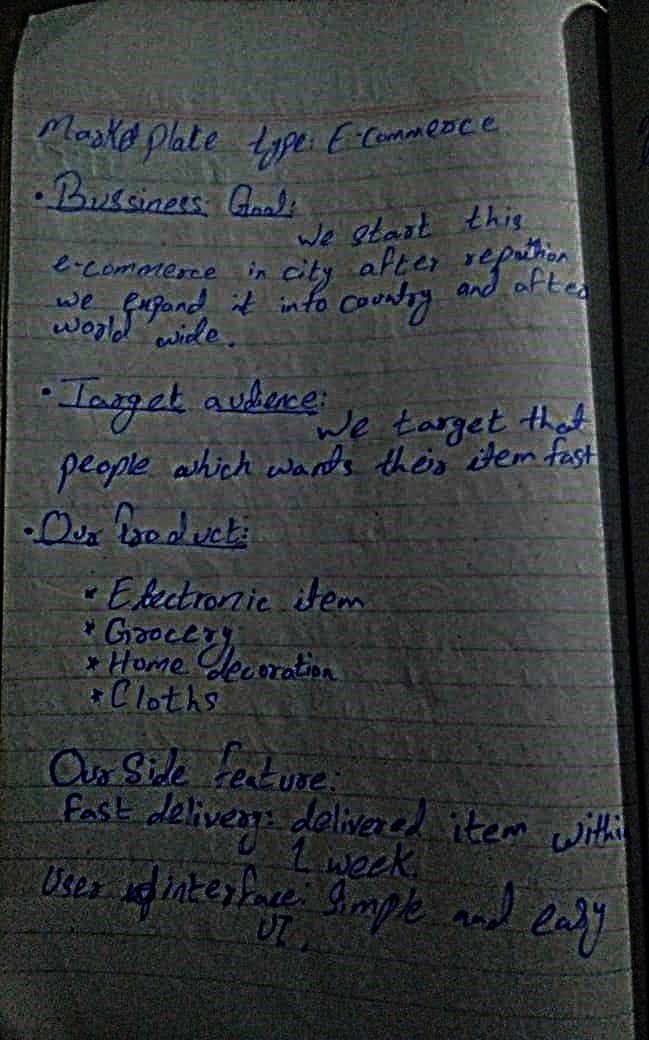 Marketplate type: E-commerce
• Bussiness Goal:
we start this
e-commerce in city after reputhion
we expand it into country and after
world wide.
• Target audience:
we target that
people which wants their item fast
• Our Product:
* Electronic item
* Grocery
* Home decoration
* Cloths
Our Side feature:
Fast delivery: delivered item within
1 week.
User interface: Simple and easy
UI.